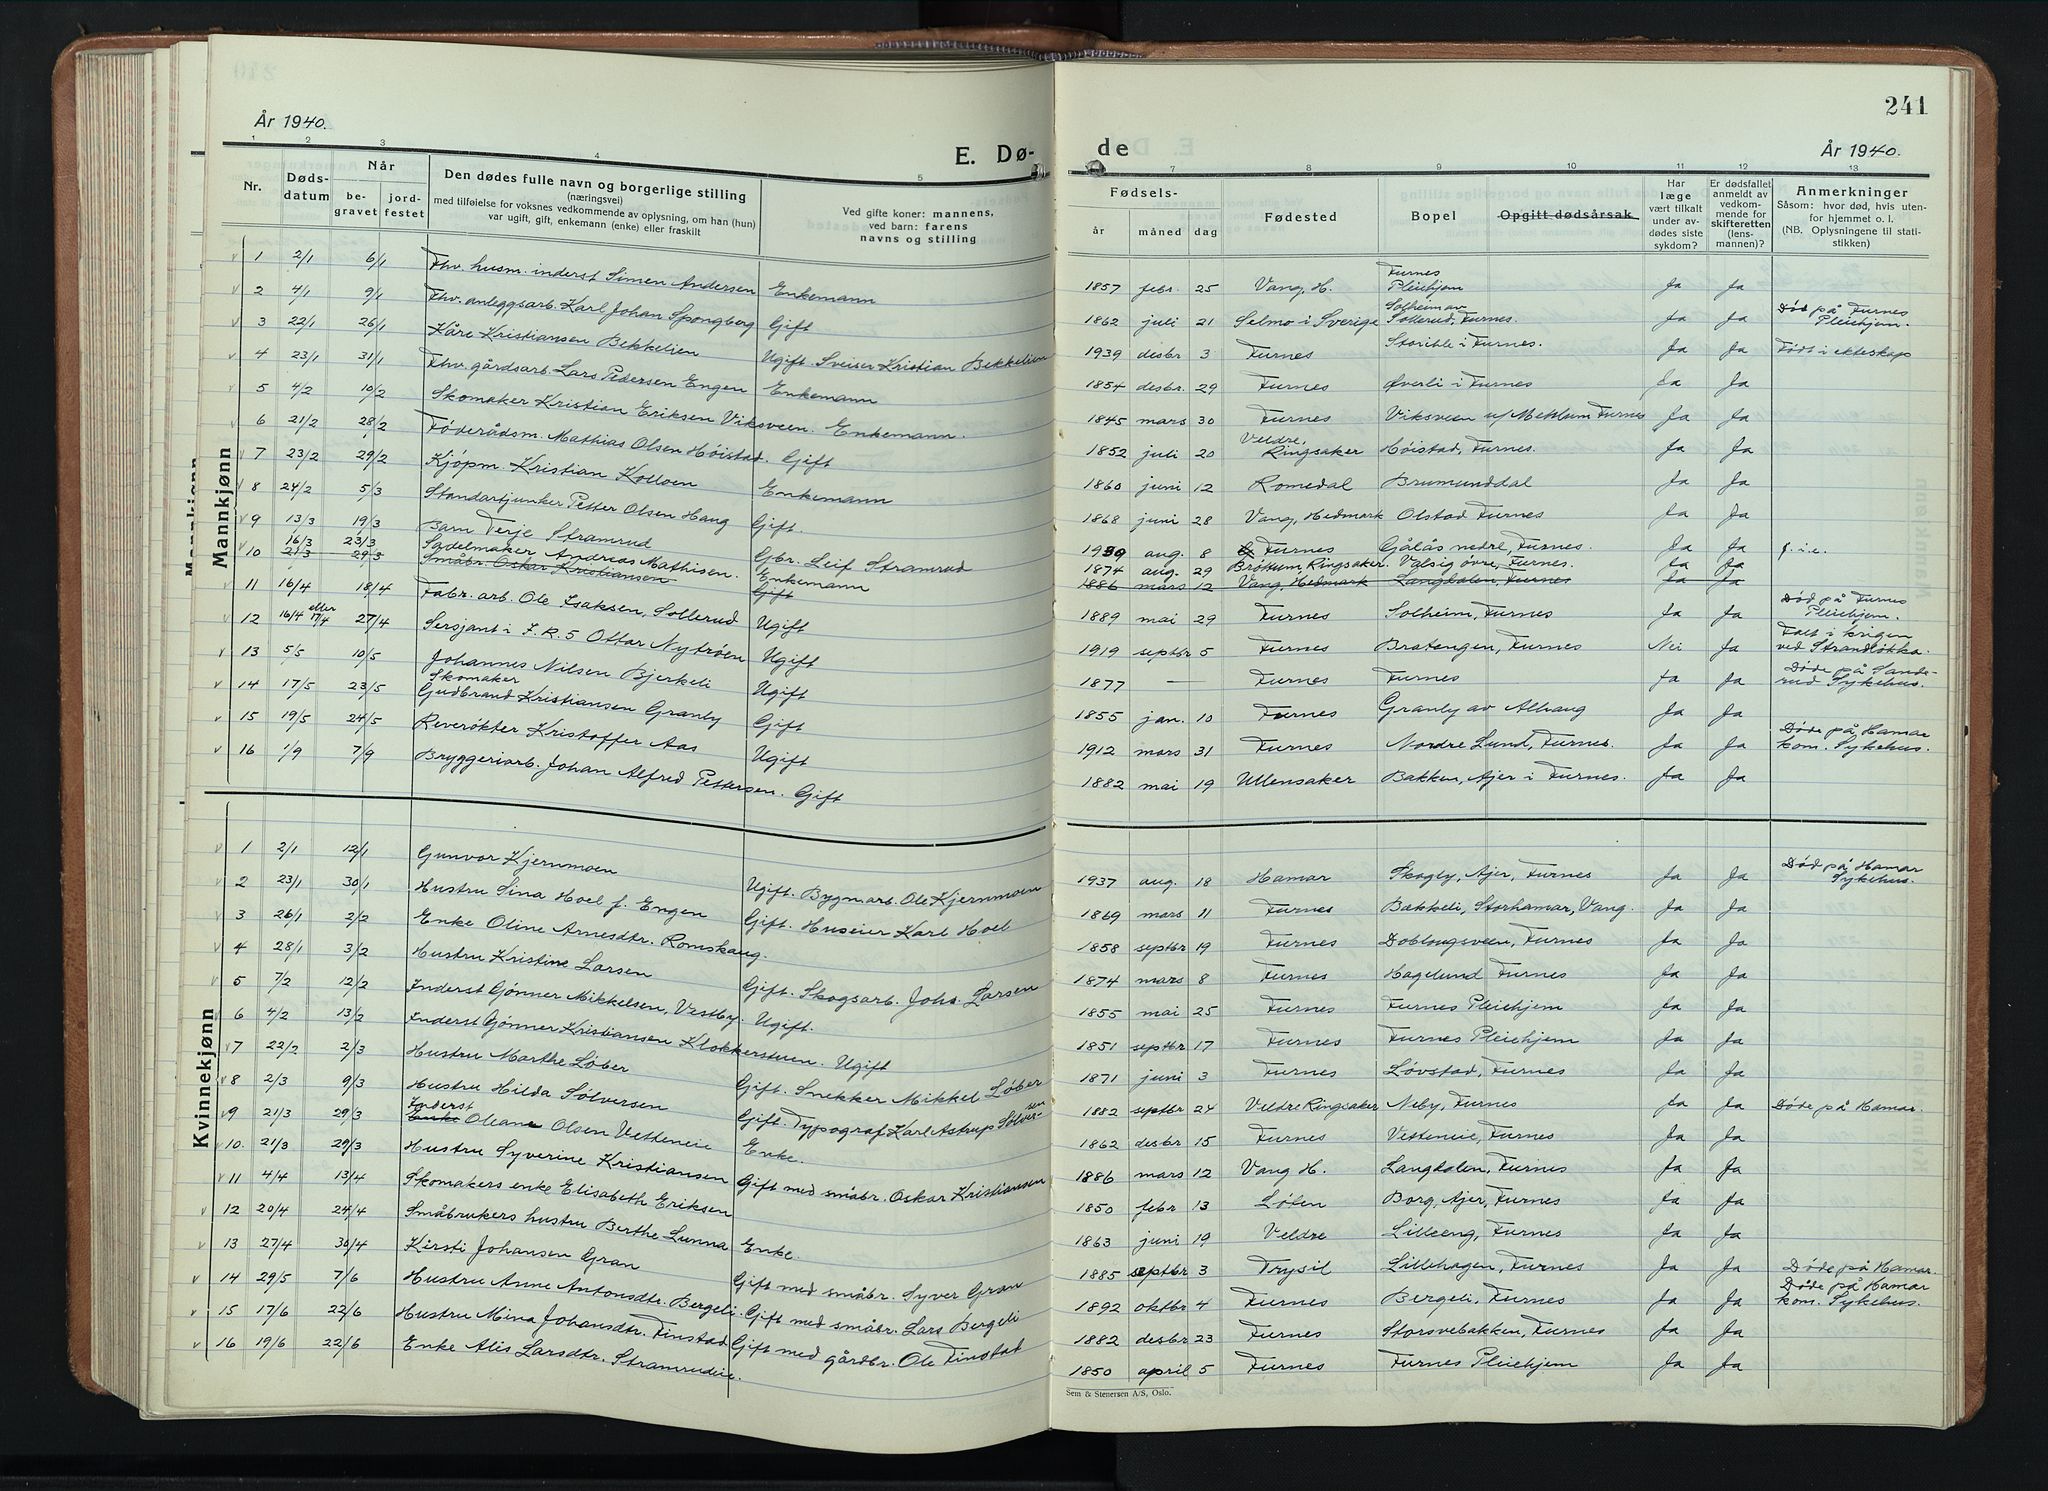 241
År 1940.
E. Dø-
de
År 1940.
1 2 3 4 5
7 8 9 10 11 12 13
Nr.
Døds-
datum
Når
be-
gravet
jord-
festet
Den dødes fulle navn og borgerlige stilling
(næringsvei)
med tilføielse for voksnes vedkommende av oplysning, om han (hun)
var ugift, gift, enkemann (enke) eller fraskilt
Ved gifte koner: mannens,
ved barn: farens
navns og stilling
Fødsels-
år
måned
dag
Fødested
Bopel
Opgitt dødsårsak
Har
læge
vært tilkalt
under av-
dødes siste
sykdom?
Er dødsfallet
anmeldt av
vedkom-
mende for
skifteretten
(lens-
mannen)?
Anmerkninger
Såsom: hvor død, hvis uten-
for hjemmet o. l.
(NB. Oplysningene til stati-
stikken)
Mannkjønn
1 2/1 6/1 Fhv. husm. inderst Simen Andersen Enkemann 1857 febr. 25 Vang, H. Furnes Pleiehjem Ja Ja
2 4/1 9/1 Fhv. anleggsarb. Karl Johan Spongberg Gift 1862 juli 21 Selmo i Sverige Solheim av Sollerud, Furnes. Ja Ja Død på Furnes Pleiehjem.
3 22/1 26/1 Kåre Kristiansen Bekkelien Ugift. Sveiser Kristian Bekkelien 1939 desbr. 3 Furnes Storihle i Furnes. Ja Ja Født i ekteskap
4 23/1 31/1 Fhv. gårdsarb. Lars Pedersen Engen Enkemann 1854 desbr. 29 Furnes Øverli i Furnes Ja Ja
5 4/2 10/2 Skomaker Kristian Eriksen Viksveen. Enkemann. 1845 mars 30 Furnes Viksveen u/ Mehlum Furnes Ja Ja
6 21/2 28/2 Føderådsm. Mathias Olsen Høistad. Gift 1852 juli 20 Veldre, Ringsaker Høistad, Furnes. Ja Ja
7 23/2 29/2 Kjøpm. Kristian Kolloen Enkemann 1860 juni 12 Romedal Brumunddal Ja Ja
8 24/2 5/3 Standartjunker Petter Olsen Haug Gift. 1868 juni 28 Vang, Hedmark Olstad Furnes Ja Ja
9 13/3 19/3 Barn Terje Stramrud Gbr. Leif Stramrud 1939 aug. 8 Furnes Gålås nedre, Furnes. Ja Ja f. i. e.
10 16/3 23/3 Sadelmaker Andreas Mathisen. Enkemann 1874 aug. 29 Brøttum, Ringsaker. Valsig øvre, Furnes. Ja Ja
21/3 29/3 Småbr. Oskar Kristiansen Gift 1886 mars 12 Vang, Hedmark Langdalen, Furnes Ja Ja
11 16/4 18/4 Fabr. arb. Ole Isaksen, Sollerud Ugift 1889 mai 29 Furnes Solheim, Furnes Ja Ja Død på Furnes Pleiehjem.
12 16/4 eller 17/4 27/4 Sersjant i I.R.5 Ottar Nytrøen Ugift 1919 septbr 5 Furnes Bratengen, Furnes Nei Ja Falt i krigen ved Strandløkka.
13 5/5 10/5 Johannes Nilsen Bjerkeli Ugift 1877 — Furnes Furnes Ja Ja Døde på Sanderud Sykehus.
14 17/5 23/5 Skomaker Gudbrand Kristiansen Granly Gift 1855 jan. 10 Furnes Granly av Alhaug Ja Ja
15 19/5 24/5 Reverøkter Kristoffer Aas Ugift 1912 mars 31 Furnes Nordre Lund, Furnes. Ja Ja Døde på Hamar kom. Sykehus.
16 1/9 7/9 Bryggeriarb. Johan Alfred Pettersen. Gift 1882 mai 19 Ullensaker Bakken, Ajer i Furnes. Ja Ja
Kvinnekjønn
1 2/1 12/1 Gunvor Kjernmoen Ugift. Bygn.arb. Ole Kjernmoen 1937 aug. 18 Hamar Skogly, Ajer, Furnes Ja Ja Død på Hamar Sykehus.
2 23/1 30/1 Hustru Sina Hoel f. Engen Gift. Huseier Karl Hoel 1869 mars 11 Furnes Bakkeli, Storhamar, Vang. Ja Ja
3 26/1 2/2 Enke Oline Arnesdtr. Romskaug. 1858 septbr 19 Furnes Doblougsveen, Furnes Ja Ja
4 28/1 3/2 Hustru Kristine Larsen Gift. Skogsarb. Johs. Larsen 1874 mars 8 Furnes Hagelund Furnes Ja Ja
5 7/2 12/2 Inderst Gønner Mikkelsen, Vestby. Ugift. 1855 mai 25 Furnes Furnes Pleiehjem Ja Ja
6 4/2 13/2 Inderst Gønner Kristiansen Klokkerstuen. Ugift 1851 septbr 17 Furnes Furnes Pleiehjem Ja Ja
7 22/2 2/3 Hustru Marthe Løber Gift. Snekker Mikkel Løber 1871 juni 3 Furnes Løvstad, Furnes Ja Ja
8 2/3 9/3 Hustru Hilda Sølversen Gift. Typograf Karl Astrup Sølversen 1882 septbr 24 Veldre Ringsaker Neby, Furnes Ja Ja Døde på Hamar.
9 21/3 29/3 Inderst Enke Oleane Olsen Vetteneie Enke. 1862 desbr 15 Furnes Vetteneie, Furnes Ja Ja
10. 21/3 29/3 Hustru Syverine Kristiansen Gift med småbr. Oskar Kristiansen 1886 mars 12 Vang H. Langdalen, Furnes Ja Ja
11 4/4 13/4 Skomakers enke Elisabeth Eriksen 1850 febr 13 Løten Borg, Ajer, Furnes Ja Ja
12 20/4 24/4 Småbrukers hustru Berthe Lunna Enke. 1863 juni 19 Veldre Lilleeng, Furnes Ja Ja
13 27/4 30/4 Kirsti Johansen Gran Gift med småbr. Syver Gran 1885 septbr 3 Trysil Lillehagen, Furnes Ja Ja Døde på Hamar.
14 29/5 7/6 Hustru Anne Antonsdtr. Bergeli. Gift med småbr. Lars Bergeli 1892 oktbr 4 Furnes Bergeli, Furnes Ja Ja Døde på Hamar kom. Sykehus.
15 17/6 22/6 Hustru Mina Johansdtr. Finstad Gift med gårdbr. Ole Finstad 1882 desbr 23 Furnes Storsvebakken, Furnes Ja Ja
16 19/6 22/6 Enke Alis Larsdtr. Stramrudeie. 1850 april 5 Furnes Furnes Pleiehjem Ja Ja
Sem & Stenersen A/S, Oslo.